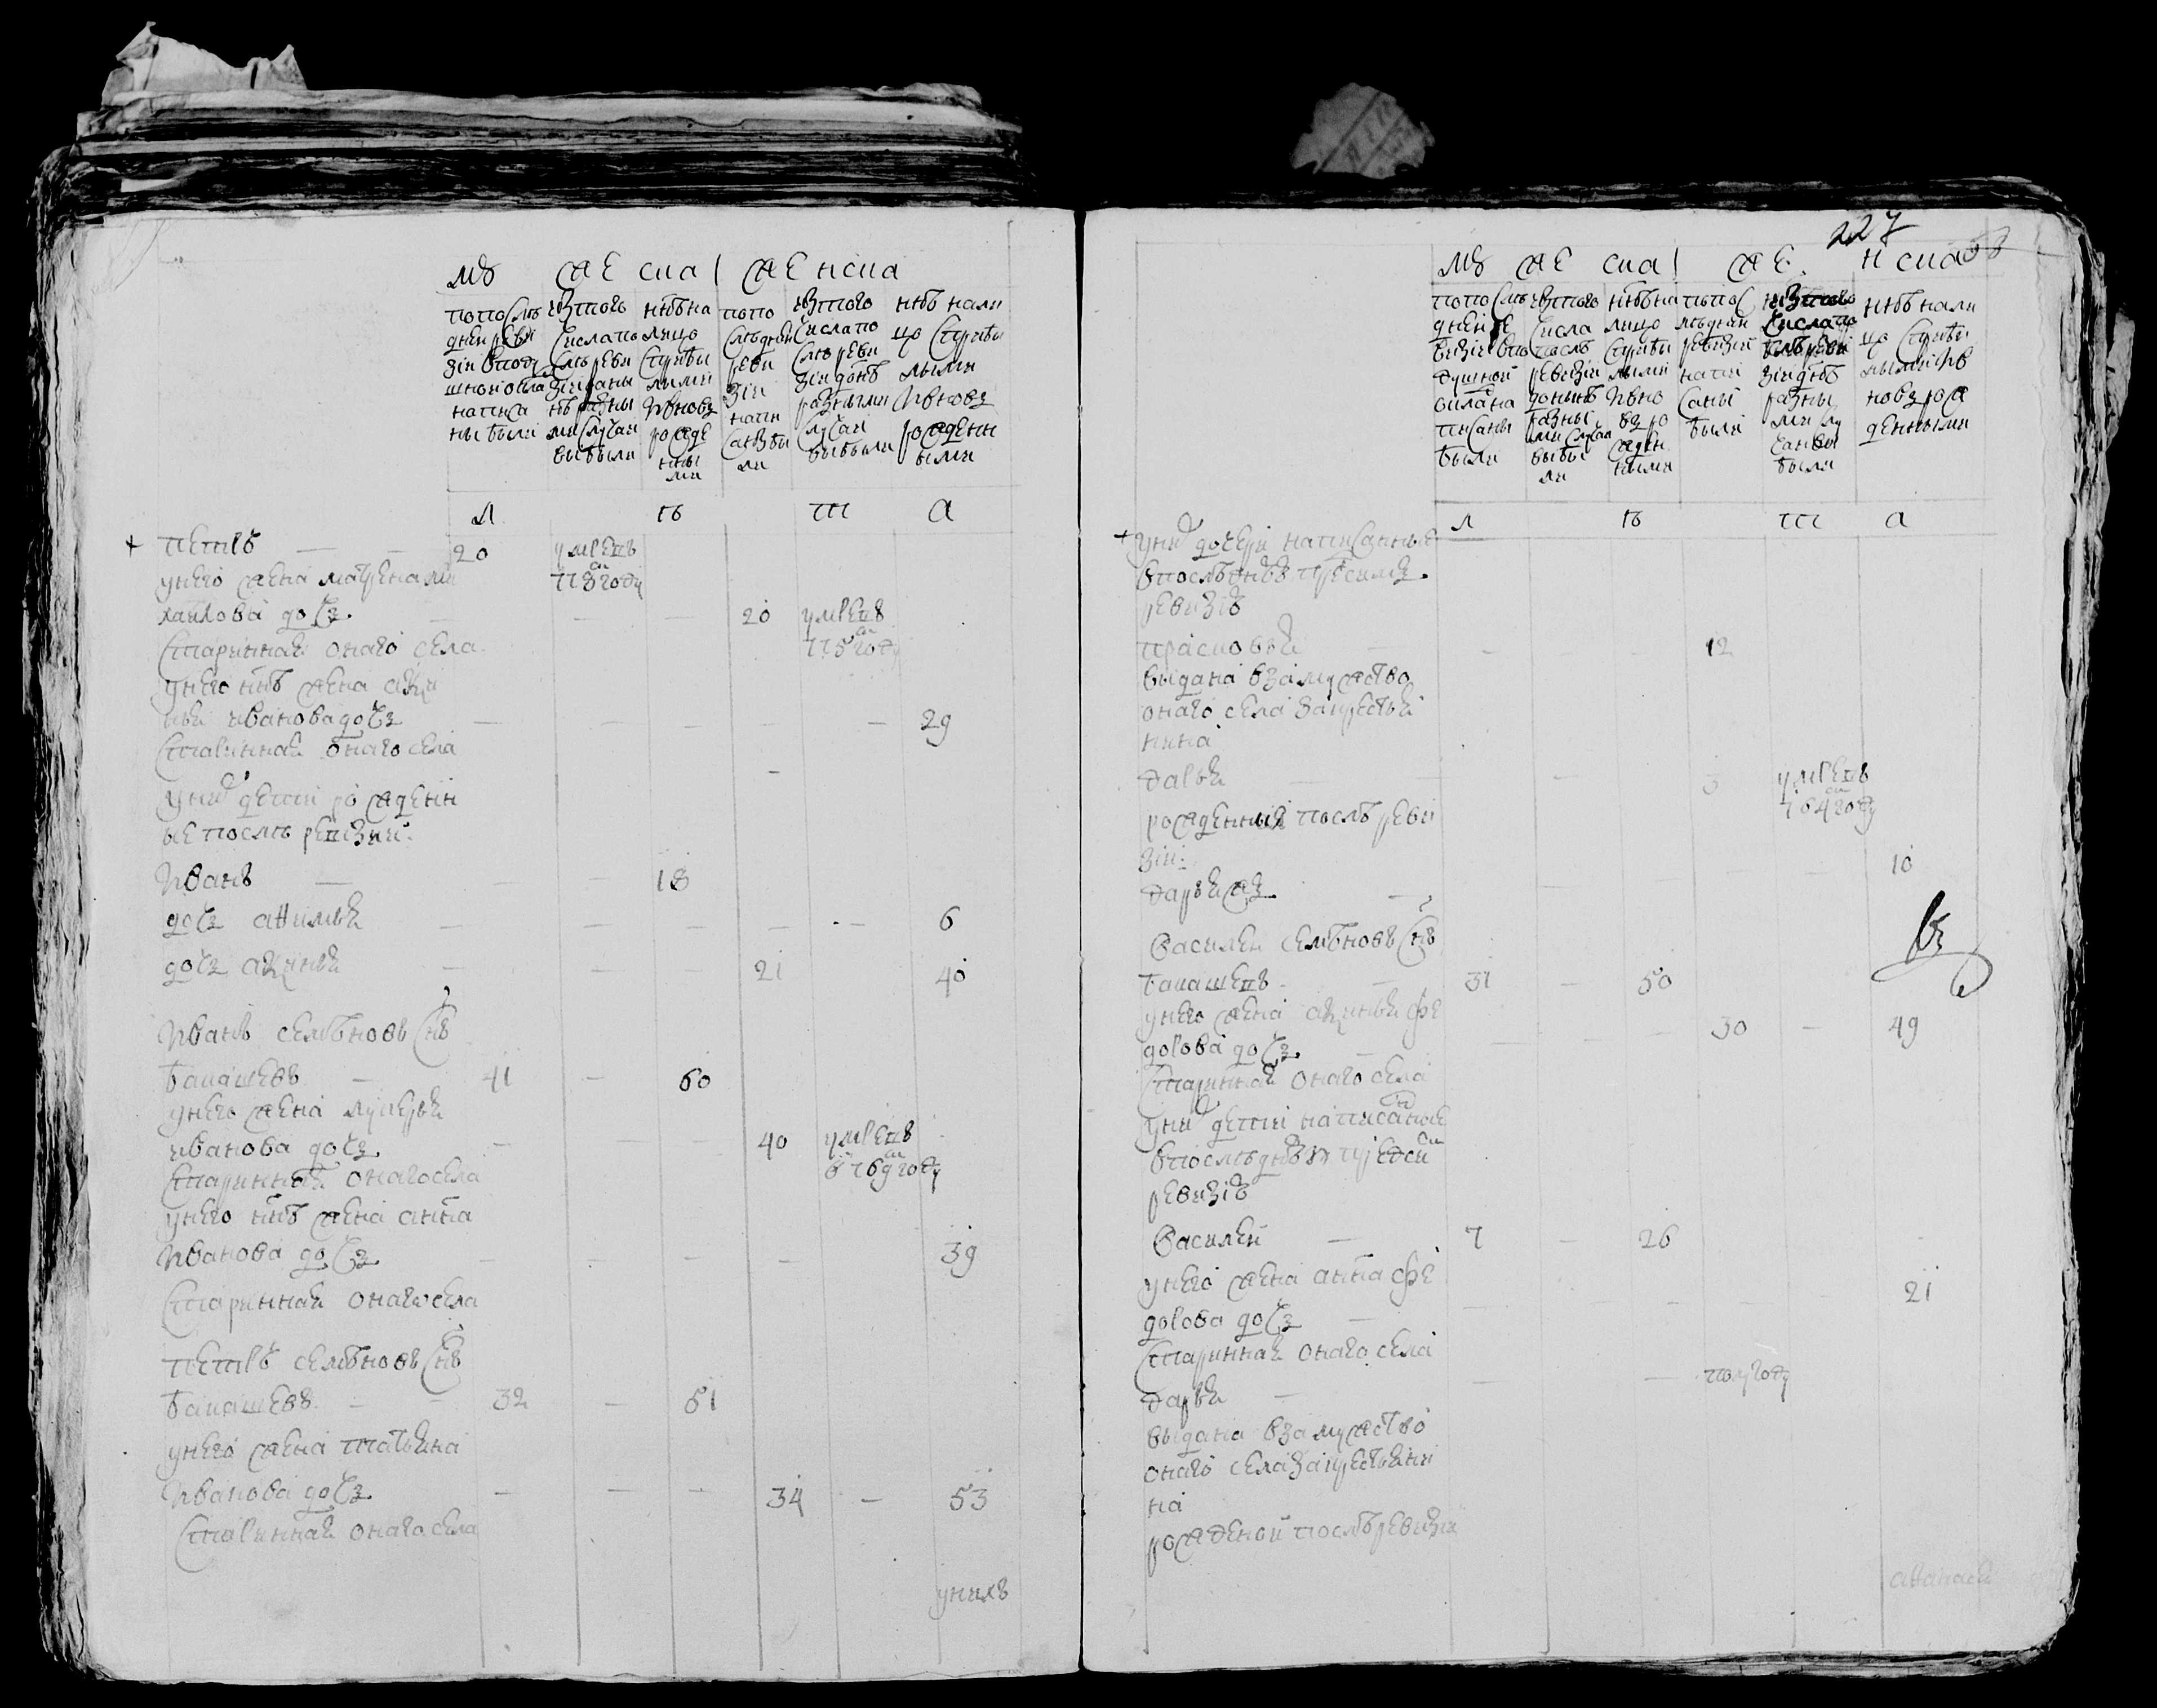 му же ска | же нска
по после / дней реви / зіи в поду / шной окла / написа / ны были
из того / числа по / сле реви / зіи даны / разны / ми случаи / выбыли
ннѣ на / лицо / с прибы / лыми / и вновь / рожде / нны / ми
по по / следней / реви / зіи / напи / саны бы / ли
из того / числа по / сле реви / зіи до ннѣ / разными / случаи / выбыли
ннѣ нали / цо с прибы / лыми / и вновь / рожденн / ыми
л ѣ т а
+ Петръ — — 20 умре въ
у него жена матрена ми 78 году
хаилова дочь — — — 20 умре въ
старинная онаго села 775 году
у него ннѣ жена акси
нья иванова дочь — — — — — 29
старинная онаго села
у них дети рожденн
ые после ревизии
Иванъ — — — 18
дочь афимья — — — — — 6
дочь аксинья — — 21 40
Иванъ семеновъ снъ
банашевъ — 41 — 60
у него жена лукерья
иванова дочь — — — 40 умре въ
старинная онаго села в 769 году
у него ннѣ жена анна
Иванова дочь — — — — 39
старинная онаго села
Петръ семеновъ снъ
банашевъ — — 32 — 51
у него жена татьяна
Иванова дочь — — — 34 — 53
старинная онаго села
у нихъ
227
му же ска | же нска
по после / дней ре / визіи в по / душной / окла на / писаны / были
из того / числа / после / ревизіи / до ннѣ / разны / ми случаи / выбы / ли
ннѣ на / лицо / с прибы / лыми / и вно / вь ро / жден / ными
по пос / ледней / ревизіи / напи / саны / были
из того / числа по / сле реви / зіи до ннѣ / разны / ми слу / чаи вы / были
ннѣ нали / цо с прибы / лыми и в / новь рож / денными
л ѣ т а
+ у них дочери написанные
в последней пред сим
ревизіи
прасковья — — — 12
выдана в замужство
онаго села за крестья
нина
дарья — — — 3 умре въ
рожденныя после реви 764 году
зіи
дарья ж — — — — 10
Василей семеновъ снъ
банашевъ — 31 — 50
у него жена аксинья фе
дорова дочь — — — 30 — 49
старинная онаго села
у них дети написанные
в последней пред сим
ревизіи
Василей — 7 — 26
у него жена анна фе
дорова дочь — — — — — 21
старинная онаго села
дарья — — — полгоду
выдана в замужство
онаго села за крестьяни
на
рожденой после ревизіи
афанасей